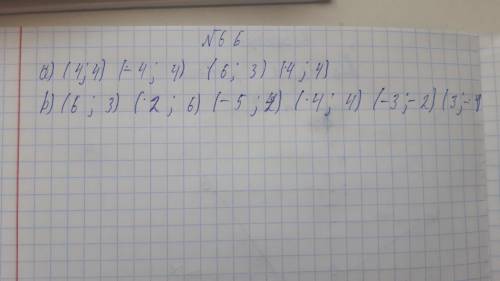 №66
a) (4;4) (-4; 4) (6; 3) (4; 4)
b) (6; 3) (2; 6) (-5; 2) (4; 4) (-3;-2) (3;-